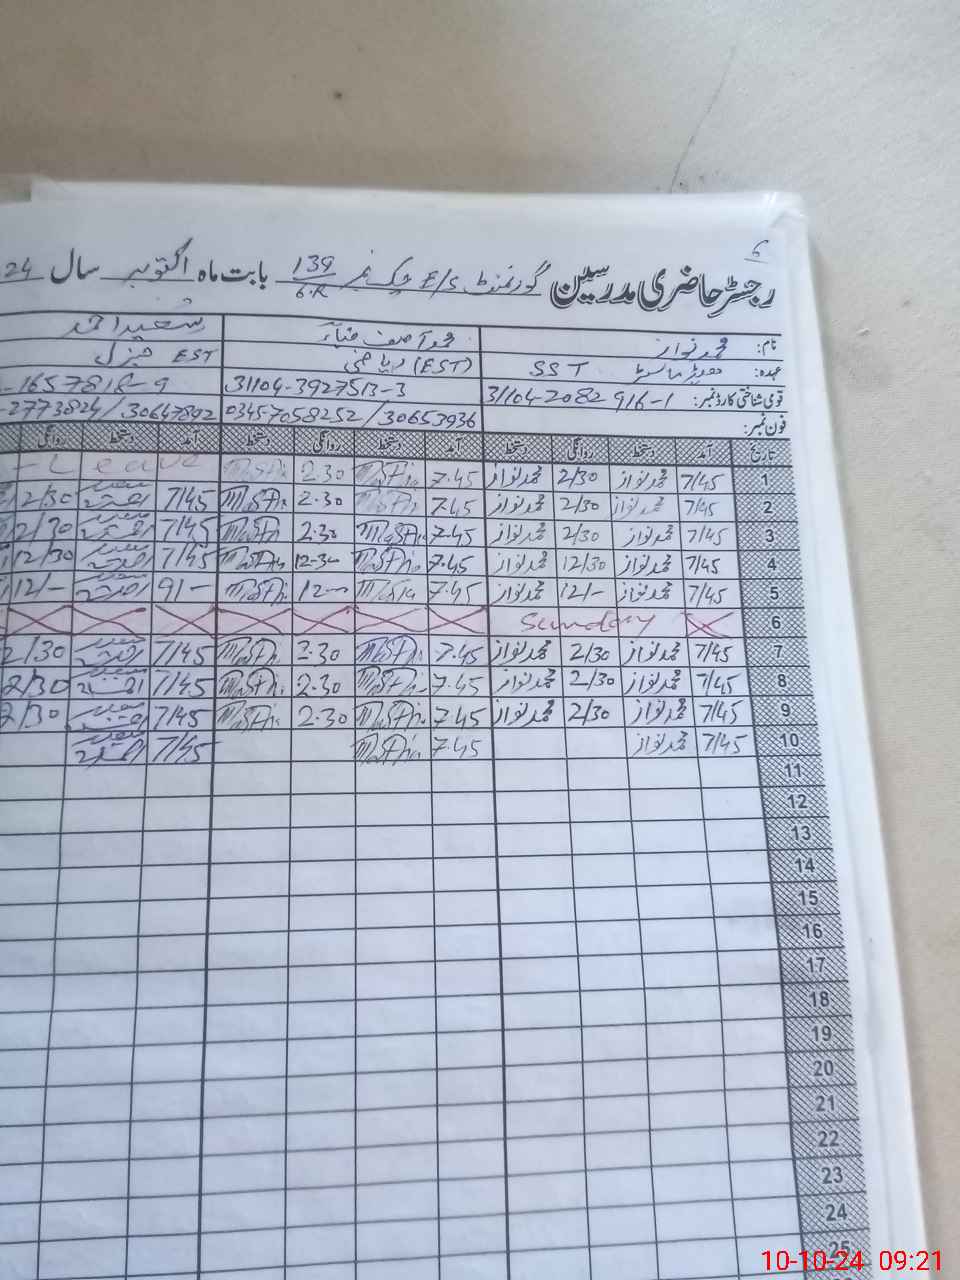 6
رجسٹر حاضری مدرسین گورنمنٹ E/S چک نمبر 139/6.R بابت ماہ اکتوبر سال 24
نام: محمد نواز محمد آصف ضیاء سعید احمد
عہدہ: ہیڈ ماسٹر SST ریاضی (EST) جنرل EST
قومی شناختی کارڈ نمبر: 31104-2082916-1 31104-3927513-3 -1657818-9
فون نمبر: 03457058252/30653936 -2773824/30647892
تاریخ آمد دستخط روانگی دستخط آمد دستخط روانگی دستخط آمد دستخط روانگی
1 7/45 محمد نواز 2/30 محمد نواز 7.45 2.30 Leave
2 7/45 محمد نواز 2/30 محمد نواز 7.45 2.30 7/45 2/30
3 7/45 محمد نواز 2/30 محمد نواز 7.45 2.30 7/45 2/30
4 7/45 محمد نواز 12/30 محمد نواز 7.45 12-30 7/45 12/30
5 7/45 محمد نواز 12/- محمد نواز 7.45 9/- 12/-
6 Sunday
7 7/45 محمد نواز 2/30 محمد نواز 7.45 2.30 7/45 2/30
8 7/45 محمد نواز 2/30 محمد نواز 7.45 2.30 7/45 2/30
9 7/45 محمد نواز 2/30 محمد نواز 7.45 2.30 7/45 2/30
10 7/45 محمد نواز 7.45 7/45
11
12
13
14
15
16
17
18
19
20
21
22
23
24
25
10-10-24 09:21